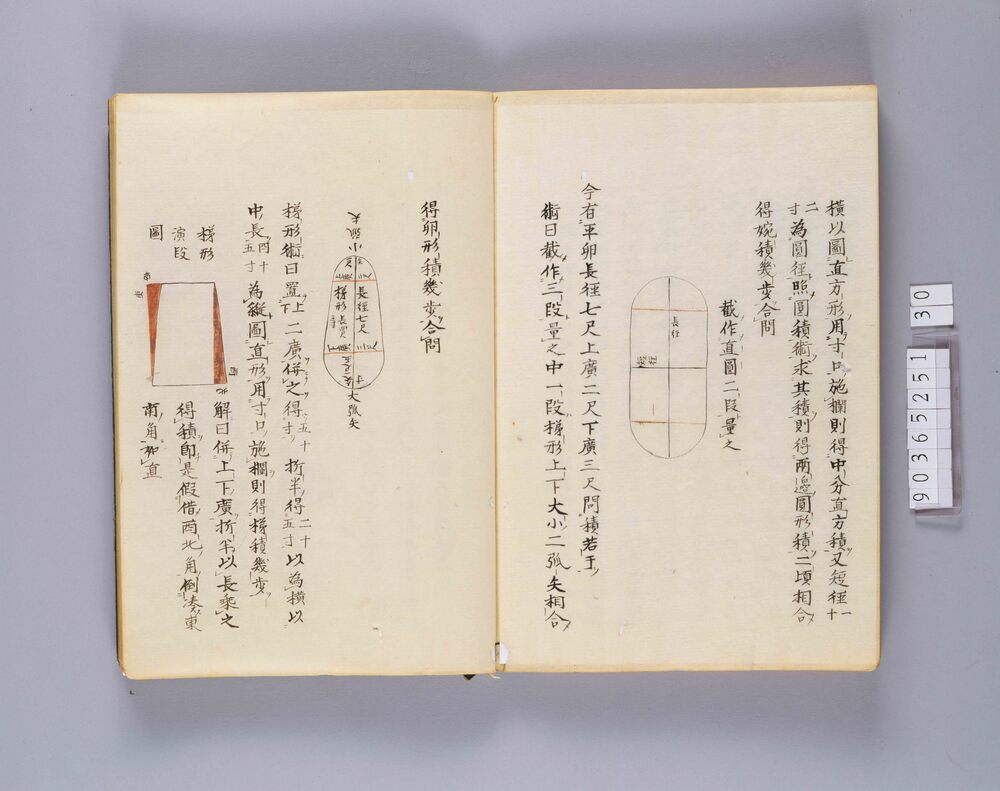 横以圖直方形用寸口施擱則得中分直方積又短徑一十
二寸為圓徑照圓積術求其積則得兩邊圓形積二頃相合
得婉積幾步合問
截作直圖二段量之
長徑
短徑
今有平卵長徑七尺上廣二尺下廣三尺問積若干
術曰截作三段量之中一段梯形上下大小二弧矢相合
得卵形積幾步合問
小弧矢
長徑七尺
大弧矢
梯形術曰置上下二廣併之得五十寸折半得二十五寸以為橫以
中長四十五寸為縱圖直形用寸口施擱則得梯積幾步
梯形
演段
圖
解曰併上下廣折半以長乘之
得積即是假借西北角倒湊東
南角抝直
30
90365251